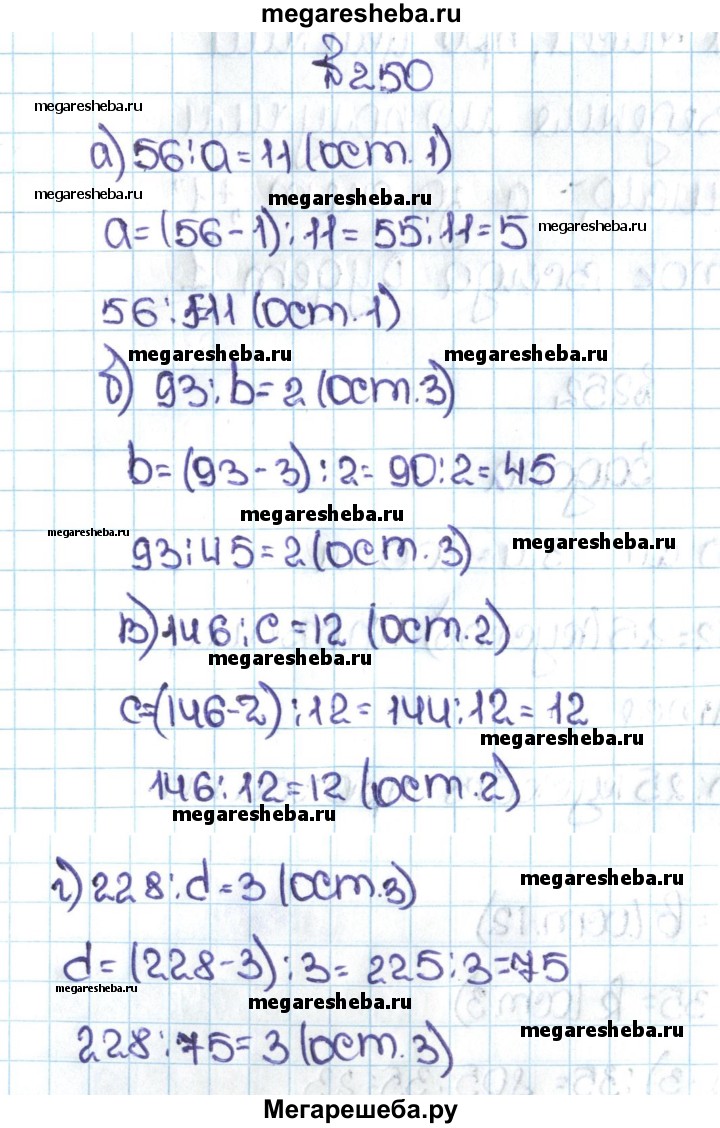 megaresheba.ru
№250
megaresheba.ru
а) 56:a=11 (ост. 1)
megaresheba.ru
megaresheba.ru
a=(56-1):11=55:11=5
megaresheba.ru
56:5=11 (ост. 1)
megaresheba.ru
megaresheba.ru
б) 93:b=2 (ост.3)
b=(93-3):2=90:2=45
megaresheba.ru
megaresheba.ru
93:45=2 (ост. 3)
megaresheba.ru
в) 146:c=12 (ост.2)
megaresheba.ru
c=(146-2):12=144:12=12
megaresheba.ru
146:12=12 (ост.2)
megaresheba.ru
г) 228:d=3 (ост.3)
megaresheba.ru
d=(228-3):3=225:3=75
megaresheba.ru
megaresheba.ru
228:75=3 (ост.3)
megaresheba.ru
Мегарешеба.ру